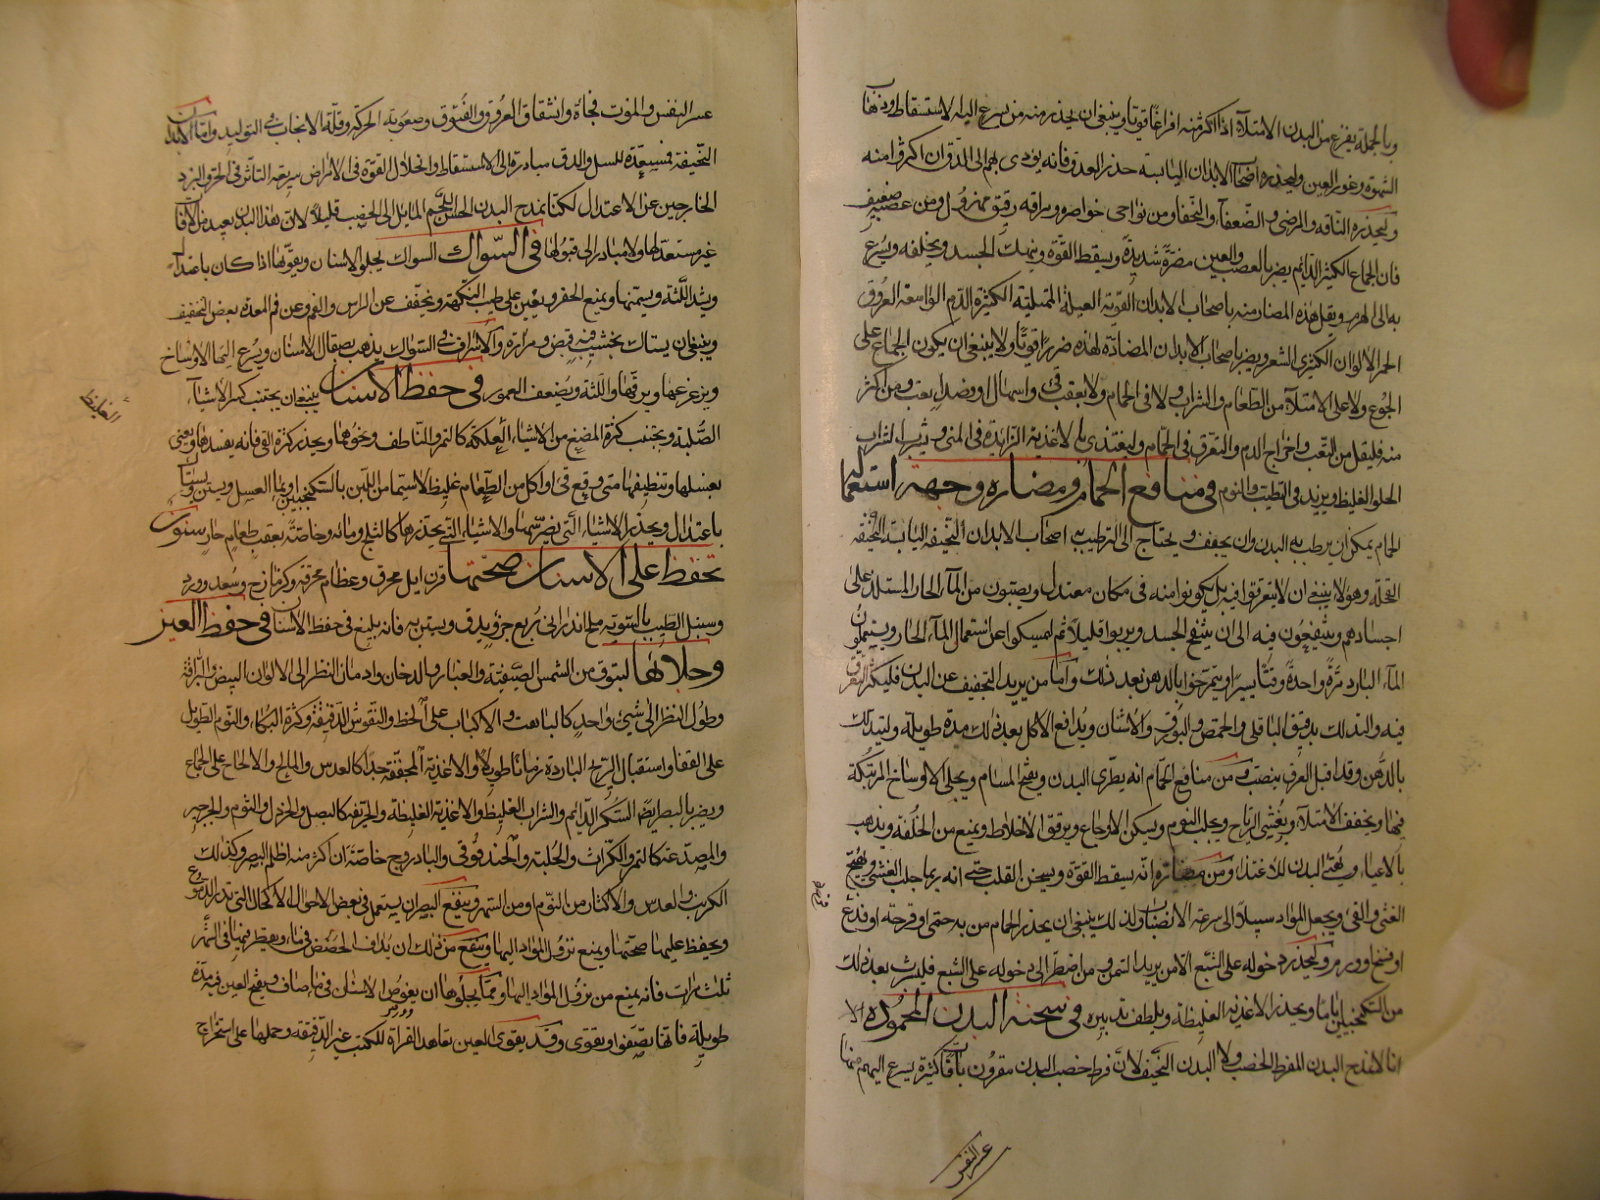 وبالجملة يفرغ من البدن الامتلاء اذا اكثر منه افراغًا قويًا وينبغي ان يحذر منه من يسرع اليه الاستسقاط وذهاب
الشهوة وغور العين وليحذره اصحاب الابدان اليابسة حذر العدو فانه يؤدي بهم الى الدق ان اكثروا منه
وليحذره الناقه والمرضى والضعفاء والنحفاء ومن نواحي خواصره ومراقه رقيق مهزول ومن عصبه ضعيف
فان الجماع الكثير الدائم يضر بالعصب والعين مضرّة شديدة ويسقط القوّة وينهك الجسد ويخلقه ويسرع
به الى الهرم ويقل هذه المضار منه باصحاب الابدان القوية العبلة الممتلية الكثيرة الدم الواسعة العروق
الحمر الالوان الكثيري الشعر ويضر باصحاب الابدان المضادّة لهذه ضررًا قويًا ولا ينبغي ان يكون الجماع على
الجوع ولا على الامتلاء من الطعام والشراب ولا في الحمام ولا بعقب قيء واسهال او فصد او تعب ومن اكثر
منه فليقل من التعب واخراج الدم والتعرق في الحمام وليغتذي بالاغذية الزائدة في المني ويشرب الشراب
الحلو الغليظ ويزيد في الطيب والنوم في منافع الحمام ومضاره وجهة استعماله
الحمام يمكن ان يرطب به البدن وان يجفف ويحتاج الى الترطيب به اصحاب الابدان النحيفة اليابسة النحيفة
القحلة وهولاء ينبغي ان لا يتعرقوا فيه بل يكونوا منه في مكان معتدل ويصبون من الماء الحار المستلذ على
اجسادهم ويستنقعون فيه الى ان ينتفخ الجسد ويربوا قليلًا ثم ليمسكوا عن استعمال الماء الحار ويستعملون
الماء البارد مرّة واحدة وقتًا يسيرًا ويتمرخوا بالدهن بعد ذلك وامّا من يريد التجفيف عن البدن فليكثر التعرق
فيه والتدلك بدقيق الباقلى والحمص والبورق والاشنان ويدافع الاكل بعد ذلك مدة طويلة وليتدلك
بالدهن وقد اقبل العرق ينصب ومن منافع الحمام انه يطري البدن ويفتح المسام ويجلي الاوساخ المرتبكة
فيها ويخفف الامتلاء ويفشي الرياح ويجلب النوم ويسكن الاوجاع ويرقق الاخلاط ويمنع من الخلفة ويذهب
بالاعياء ويهيئ البدن للاغتذاء ومن مضاره انه يسقط القوّة ويسخن القلب حتى انه ربما جلب الغشي ويهيج
الغثي والقيء ويجعل المواد سبيلًا الى سرعة الانصباب ولذلك ينبغي ان يحذر الحمام من به حمى او قرحة او فدغ
او فسخ او ورم وليحذر دخوله على الشبع الا من يريد السمن ومن اضطر الى دخوله على الشبع فليشرب بعد ذلك
من السكنجبين ايامًا ويحذر الاغذية الغليظة ويلطف تدبيره في سحنة البدن المحمودة الا
انا لا نمدح البدن المفرط الخصب ولا البدن النحيف لانّ فرط خصب البدن مقرون بآفات كثيرة يسرع اليهم منها
عسر النفس
عسر النفس والموت فجأة وانشقاق العروق والفتوق وصعوبة الحركة وقلة الانجاب في التوليد وامّا الابدان
النحيفة فمستعدّة للسل والدق مبادرة الى الاستسقاط وانحلال القوّة في الامراض سريعة التأثر في الحر والبرد
الخارجين عن الاعتدال لكنّا نمدح البدن الحسن اللحم المايل الى الخصب قليلًا لان هذا البدن بعيد من الآفات
غير مستعد لها ولا مبادر الى قبولها في السّواك السواك يجلو الاسنان ويقويها اذا كان باعتدال
ويشد اللثة ويسمنها ويمنع الحفر ويعين على طيب النكهة ويخفف عن الراس والفم وعن فم المعدة بعض التخفيف
وينبغي ان يستاك بخشب فيه قبض ومرارة والاسراف في السواك يذهب بصقال الاسنان ويسرع اليها الاوساخ
ويزعزعها ويرقها واللثة ويضعف العمور في حفظ الاسنان ينبغي ان يجتنب كسر الاشياء
الصلبة ويجتنب كثرة المضغ من الاشياء العلكة كالتمر والناطف ونحوها ويحذر كثرة القيء فانه يفسدها ويعنى
بغسلها وتنظيفها متى وقع قيء او اكل من الطعام غليظ لا سيما من اللبن بالسكنجبين او بماء العسل ويستن ويستاك
باعتدال ويحذر الاشياء التي تضرّسها والاشياء التي تخدرها كالثلج ومائه وخاصة بعقب طعام حار سنون
تحفظ على الاسنان صحّتها قرن ايل محرق وعظام محرقة وكزمازج وسعد وورد
وسنبل الطيب بالسوية ملح اندراني ربع جزو يدق ويستن به فانه بليغ في حفظ الاسنان في حفظ العين
وجلائها لتتوق من الشمس الصيفية والغبار والدخان وادمان النظر الى الالوان البيض البراقة
وطول النظر الى شيء واحد كالباهت والاكباب على الخط والنقوش الدقيقة وكثرة البكاء والنوم الطويل
على القفا واستقبال الريح الباردة زمانًا طويلًا والاغذية المجففة جدًا كالعدس والمالح والالحاح على الجماع
ويضر بالبصر ايضًا السكر الدائم والشراب الغليظ والاغذية الغليظة والحريفة كالبصل والخردل والثوم والجرجير
والمصدعة كالتمر والكراث والحلبة والحندقوقى والباذروج خاصة ان اكثر منه اظلم البصر وكذلك
الكرنب والعدس والاكثار من النوم ومن السهر وينفع البصر ان يستعمل في بعض الاحوال الاكحال التي تدر الدموع
ويحفظ عليها صحتها ويمنع نزول المواد اليها وينفع من ذلك ان يداف الحضض في ماء ويقطر فيها في الشهر
ثلث مرات فانه يمنع من نزول المواد اليها ومما يجلوها ان يغوص الانسان في ماء صاف ويفتح العين فيه مدة
طويلة فانها تصفوا وتقوى وقد يقوي العين تعاهد القراة للكتب غير الدقيقة وحملها على استخراج
الغليظ